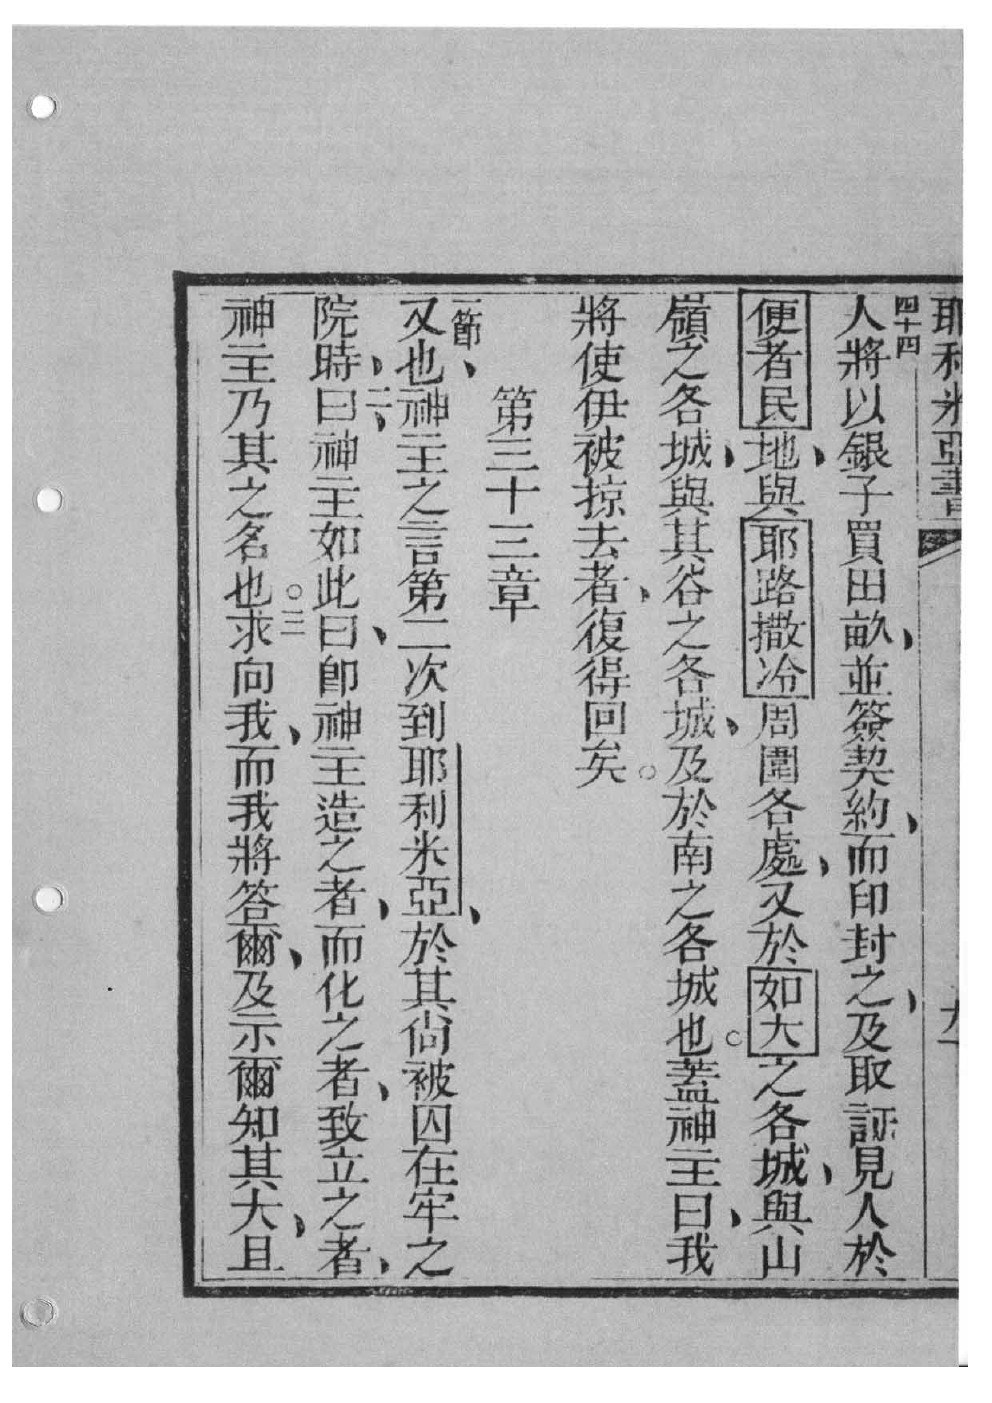 耶利米亞書
四十四
人將以銀子買田畝、並簽契約、而印封之、及取証見人於
便者民地、與耶路撒冷周圍各處、又於如大之各城、與山
嶺之各城、與其谷之各城、及於南之各城也。蓋神主曰、我
將使伊被掠去者、復得回矣。
第三十三章
一節
又也、神主之言第二次到耶利米亞、於其尙被囚在牢之
院時、曰二、神主如此曰、卽神主造之者、而化之者、致立之者、
神主乃其之名也。三求向我、而我將答爾、及示爾知其大、且